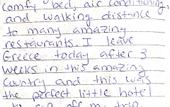 comfy bed, air conditioning,
and walking distance
to many amazing
restaurants. I leave
Greece today after 3
weeks in this amazing
country and this was
the perfect little hotel
to end off my trip